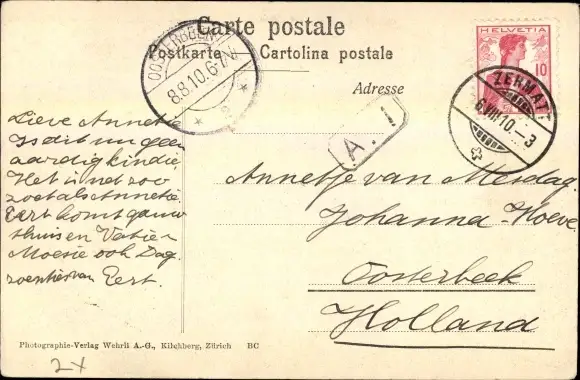 Carte postale
Postkarte Cartolina postale
Adresse
HELVETIA
10
OOSTERBEEK
8.8.10.6-7V
ZERMATT
6.VIII.10.-3
A. 1
Lieve Annetje
Is dit nu geen
aardig kindje
Het is net zoo
zoet als Annetje
Eert komt gauw
thuis en Vatie
Moesie ook Dag.
zoentjes van Eert.
Annetje van Mesdag.
Johanna-Hoeve
Oosterbeek
Holland
Photographie-Verlag Wehrli A.-G., Kilchberg, Zürich BC
2x